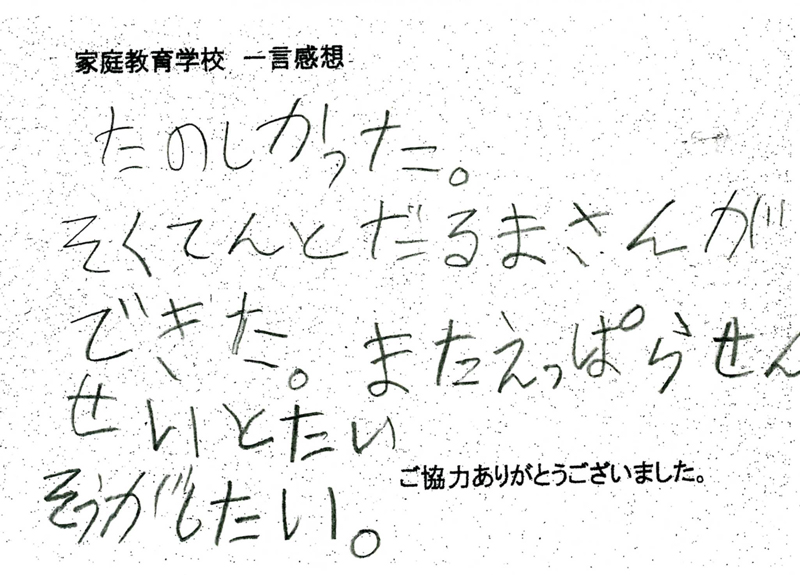 家庭教育学校 一言感想
たのしかった。
そくてんとだるまさんが
できた。またえっぱらせん
せいとたい
そうがしたい。
ご協力ありがとうございました。